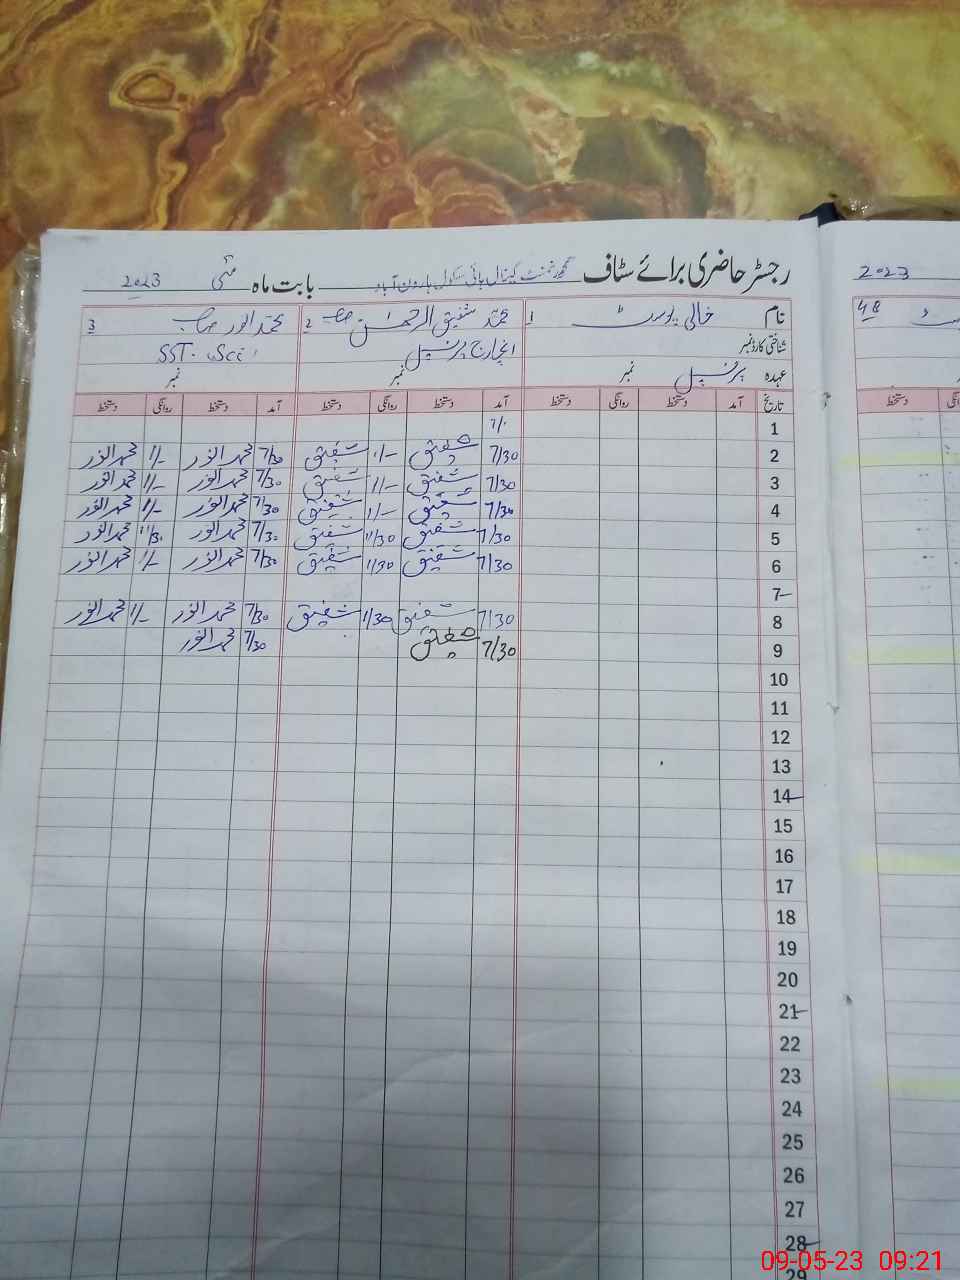 رجسٹر حاضری برائے سٹاف گورنمنٹ کینال ہائی سکول ہارون آباد بابت ماہ مئی 2023
2023
نام خالی پوسٹ 1 محمد شفیق الرحمٰن صاحب 2 محمد انور صاحب 3
48
شناختی کارڈ نمبر انچارج پرنسپل SST. Sci
عہدہ پرنسپل نمبر نمبر نمبر
تاریخ آمد دستخط روانگی دستخط آمد دستخط روانگی دستخط آمد دستخط روانگی دستخط
1 7/
2 7/30 شفیق 1/- شفیق 7/30 محمد انور 1/- محمد انور
3 7/30 شفیق 1/- شفیق 7/30 محمد انور 1/- محمد انور
4 7/30 شفیق 1/- شفیق 7/30 محمد انور 1/- محمد انور
5 7/30 شفیق 11/30 شفیق 7/30 محمد انور 11/30 محمد انور
6 7/30 شفیق 1/30 شفیق 7/30 محمد انور 1/- محمد انور
7
8 7/30 شفیق 1/30 شفیق 7/30 محمد انور 1/- محمد انور
9 7/30 شفیق 7/30 محمد انور
10
11
12
13
14
15
16
17
18
19
20
21
22
23
24
25
26
27
28
29
09-05-23 09:21